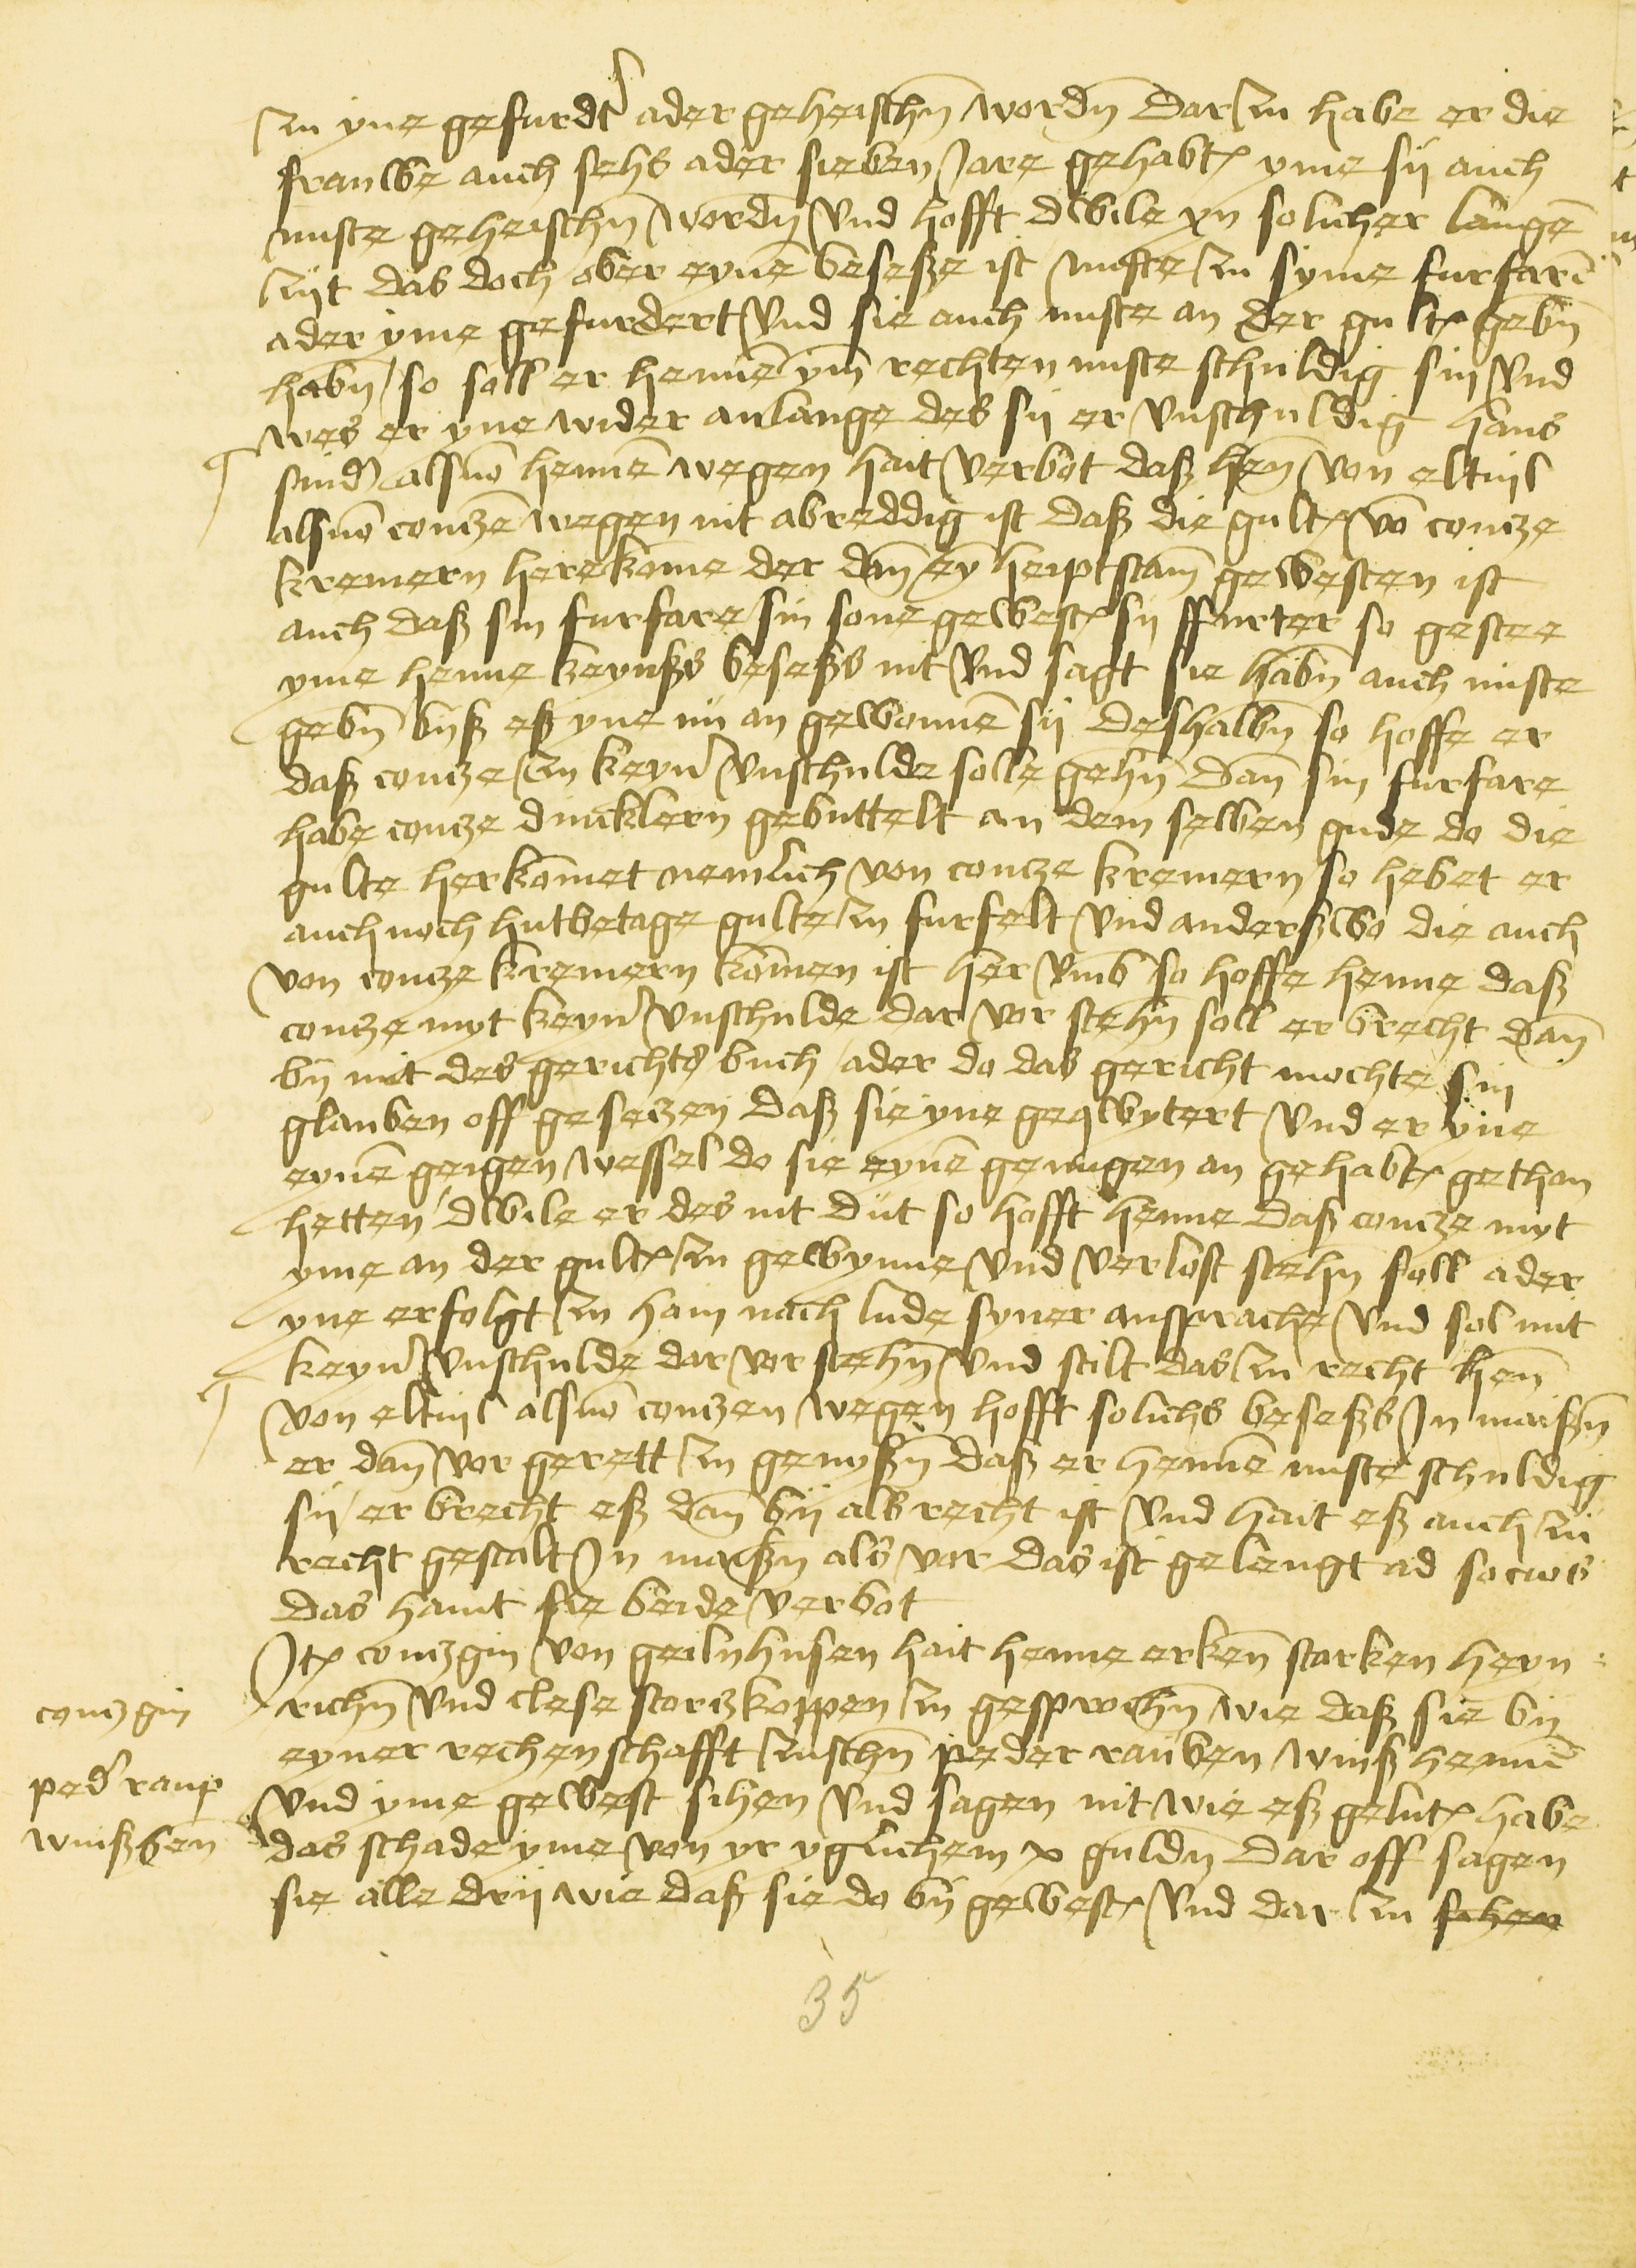 zu yne gefurdt ader geheischn wordn Dar zu habe er die
frauwe auch sehs ader sieben Jare gehabt yme sij auch
nuste geheischn wordn Vnd hofft dwile yn solicher lange
zijt das doch ober eyne besesze ist nuste zu syme furfare
ader yme gefurdert Vnd sie auch nuste an der gult gebn
habn / so soll er henne ym rechten nuste schuldig sin Vnd
wes er yne wider anlange des sij er Vnschuldig hans
snid alsuo henne wegen hait verbot daß hen von eltuil
alsuo contze wegen nit abreddig ist daß die gult vo contze
kremern herekome der dan ey heiptstam gewesten ist
auch daß sin furfare sin sone gewest sij ffurter so gestee
yme henne keynßs beseßs nit Vnd sagt sie habn auch nuste
gebn byß eß yne nu an gewonne sij deshalbn so hoffe er
daß contze zu keyn Vnschulde solle gehn Dan sin furfare
habe contze duncklern gebuttelt an dem selben gude do die
gulte herkomet nemlich von contze kremern / so hebet er
auch noch hutbetage gulte zu furfelt Vnd anderßwo die auch
von contze kremern komen ist her Vmb so hoffe henne daß
contze myt keyn Vnschulde dar vor stehn soll er brecht dan
bij mit des gerichts buch / ader do das gericht mochte sin
glauben off gesetzen daß sie yne geqwytert Vnd er yne
eyne geigen wessel do sie eyne genugen an gehabt gethan
hetten / dwile er des nit dut so hofft henne daß contze myt
yme an der gult zu gewynne Vnd verlost stehn soll ader
yne erfolgt zu ham nach lude syner ansprache Vnd sol mit
keyn Vnschulde dar vor stehn Vnd stilt das zu recht hen
von eltuil alsuo contzen wegen hofft solichs beseßs In maißn
er dan vor gerett zu genyßn daß er henne nuste schuldig
sij / er brecht eß dan bij als recht ist Vnd hait eß auch zu
recht gestalt In maißn als vor Das ist gelengt ad socios
Das haint sie beide verbot
It contzgin von geilnhusen hait henne erken starken heyn
richn Vnd clese storczkoppen zu gesprochn wie daß sie bij
eyner rechenschafft zuschn peder rauben winß henne
Vnd yme gewest sihen Vnd sagen nit wie eß gelut habe
das schade yme von yr yglichem x guldn Dar off sagen
sie alle drij wie daß sie do bij gewest Vnd dar zu sihen
contzgin
ped raup
winßhen
35